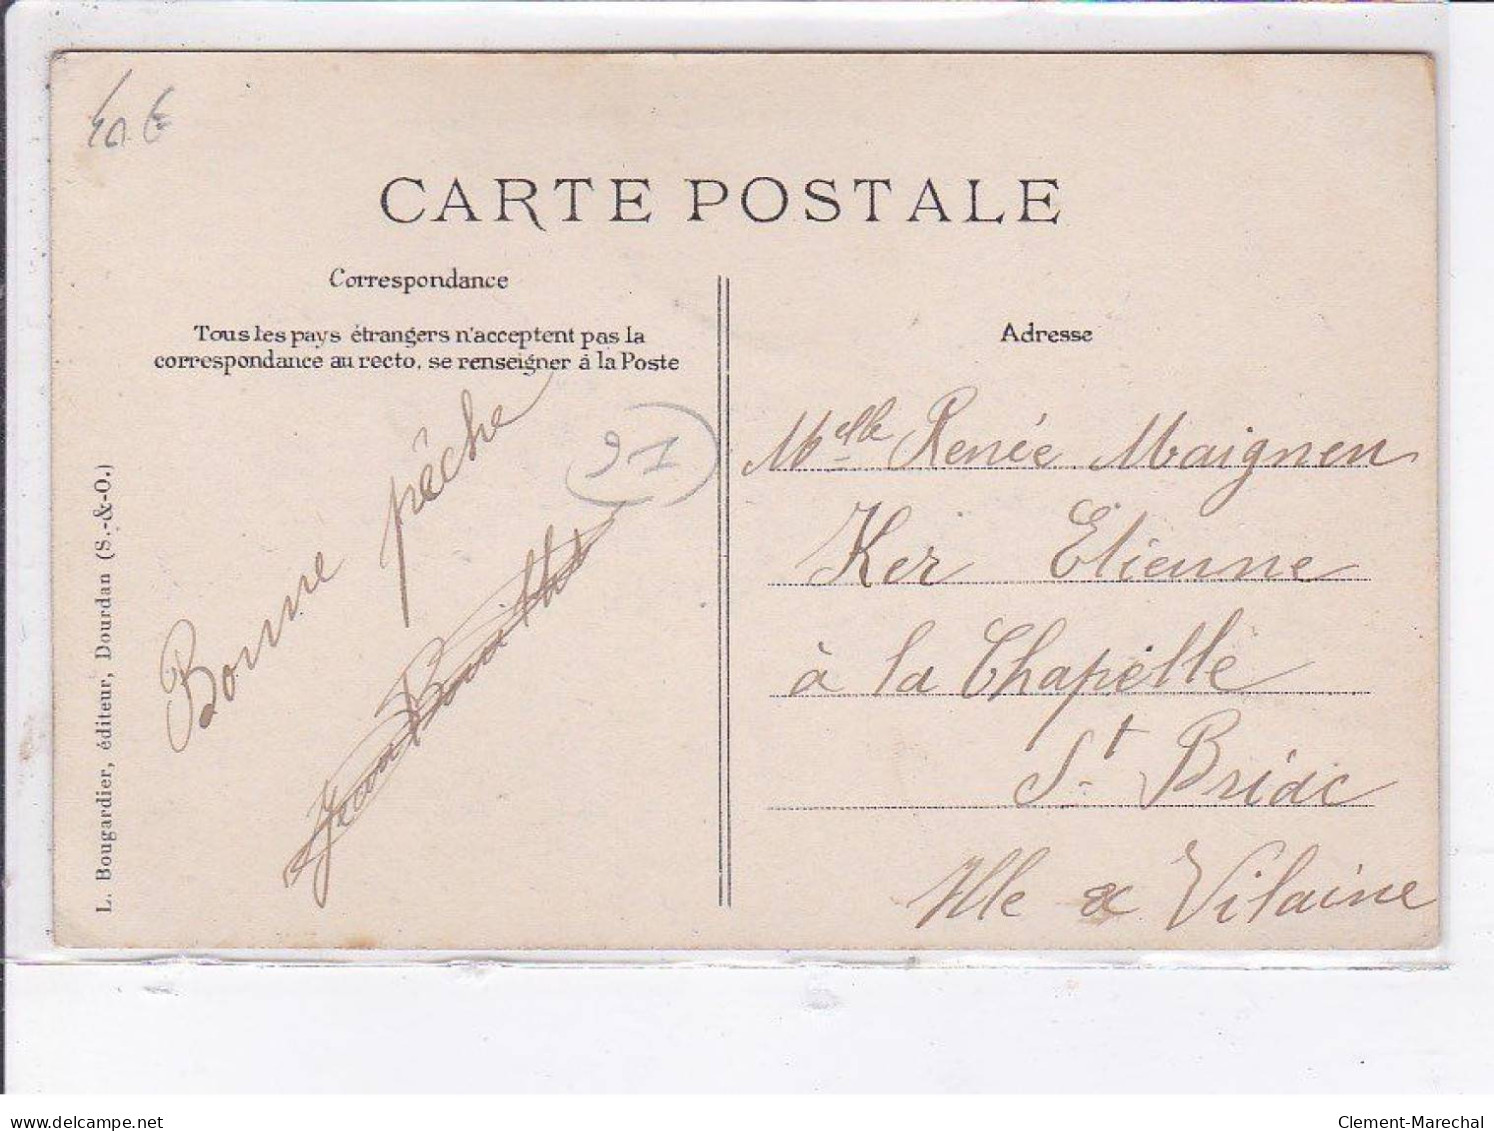 CARTE POSTALE
Correspondance
Tous les pays étrangers n'acceptent pas la
correspondance au recto, se renseigner à la Poste
Adresse
Bonne pêche
91
Melle Renée Maignen
Ker Etienne
à la Chapelle
St Briac
Ille & Vilaine
L. Bougardier, éditeur, Dourdan (S.-&-O.)
delcampe.net
Clement-Marechal